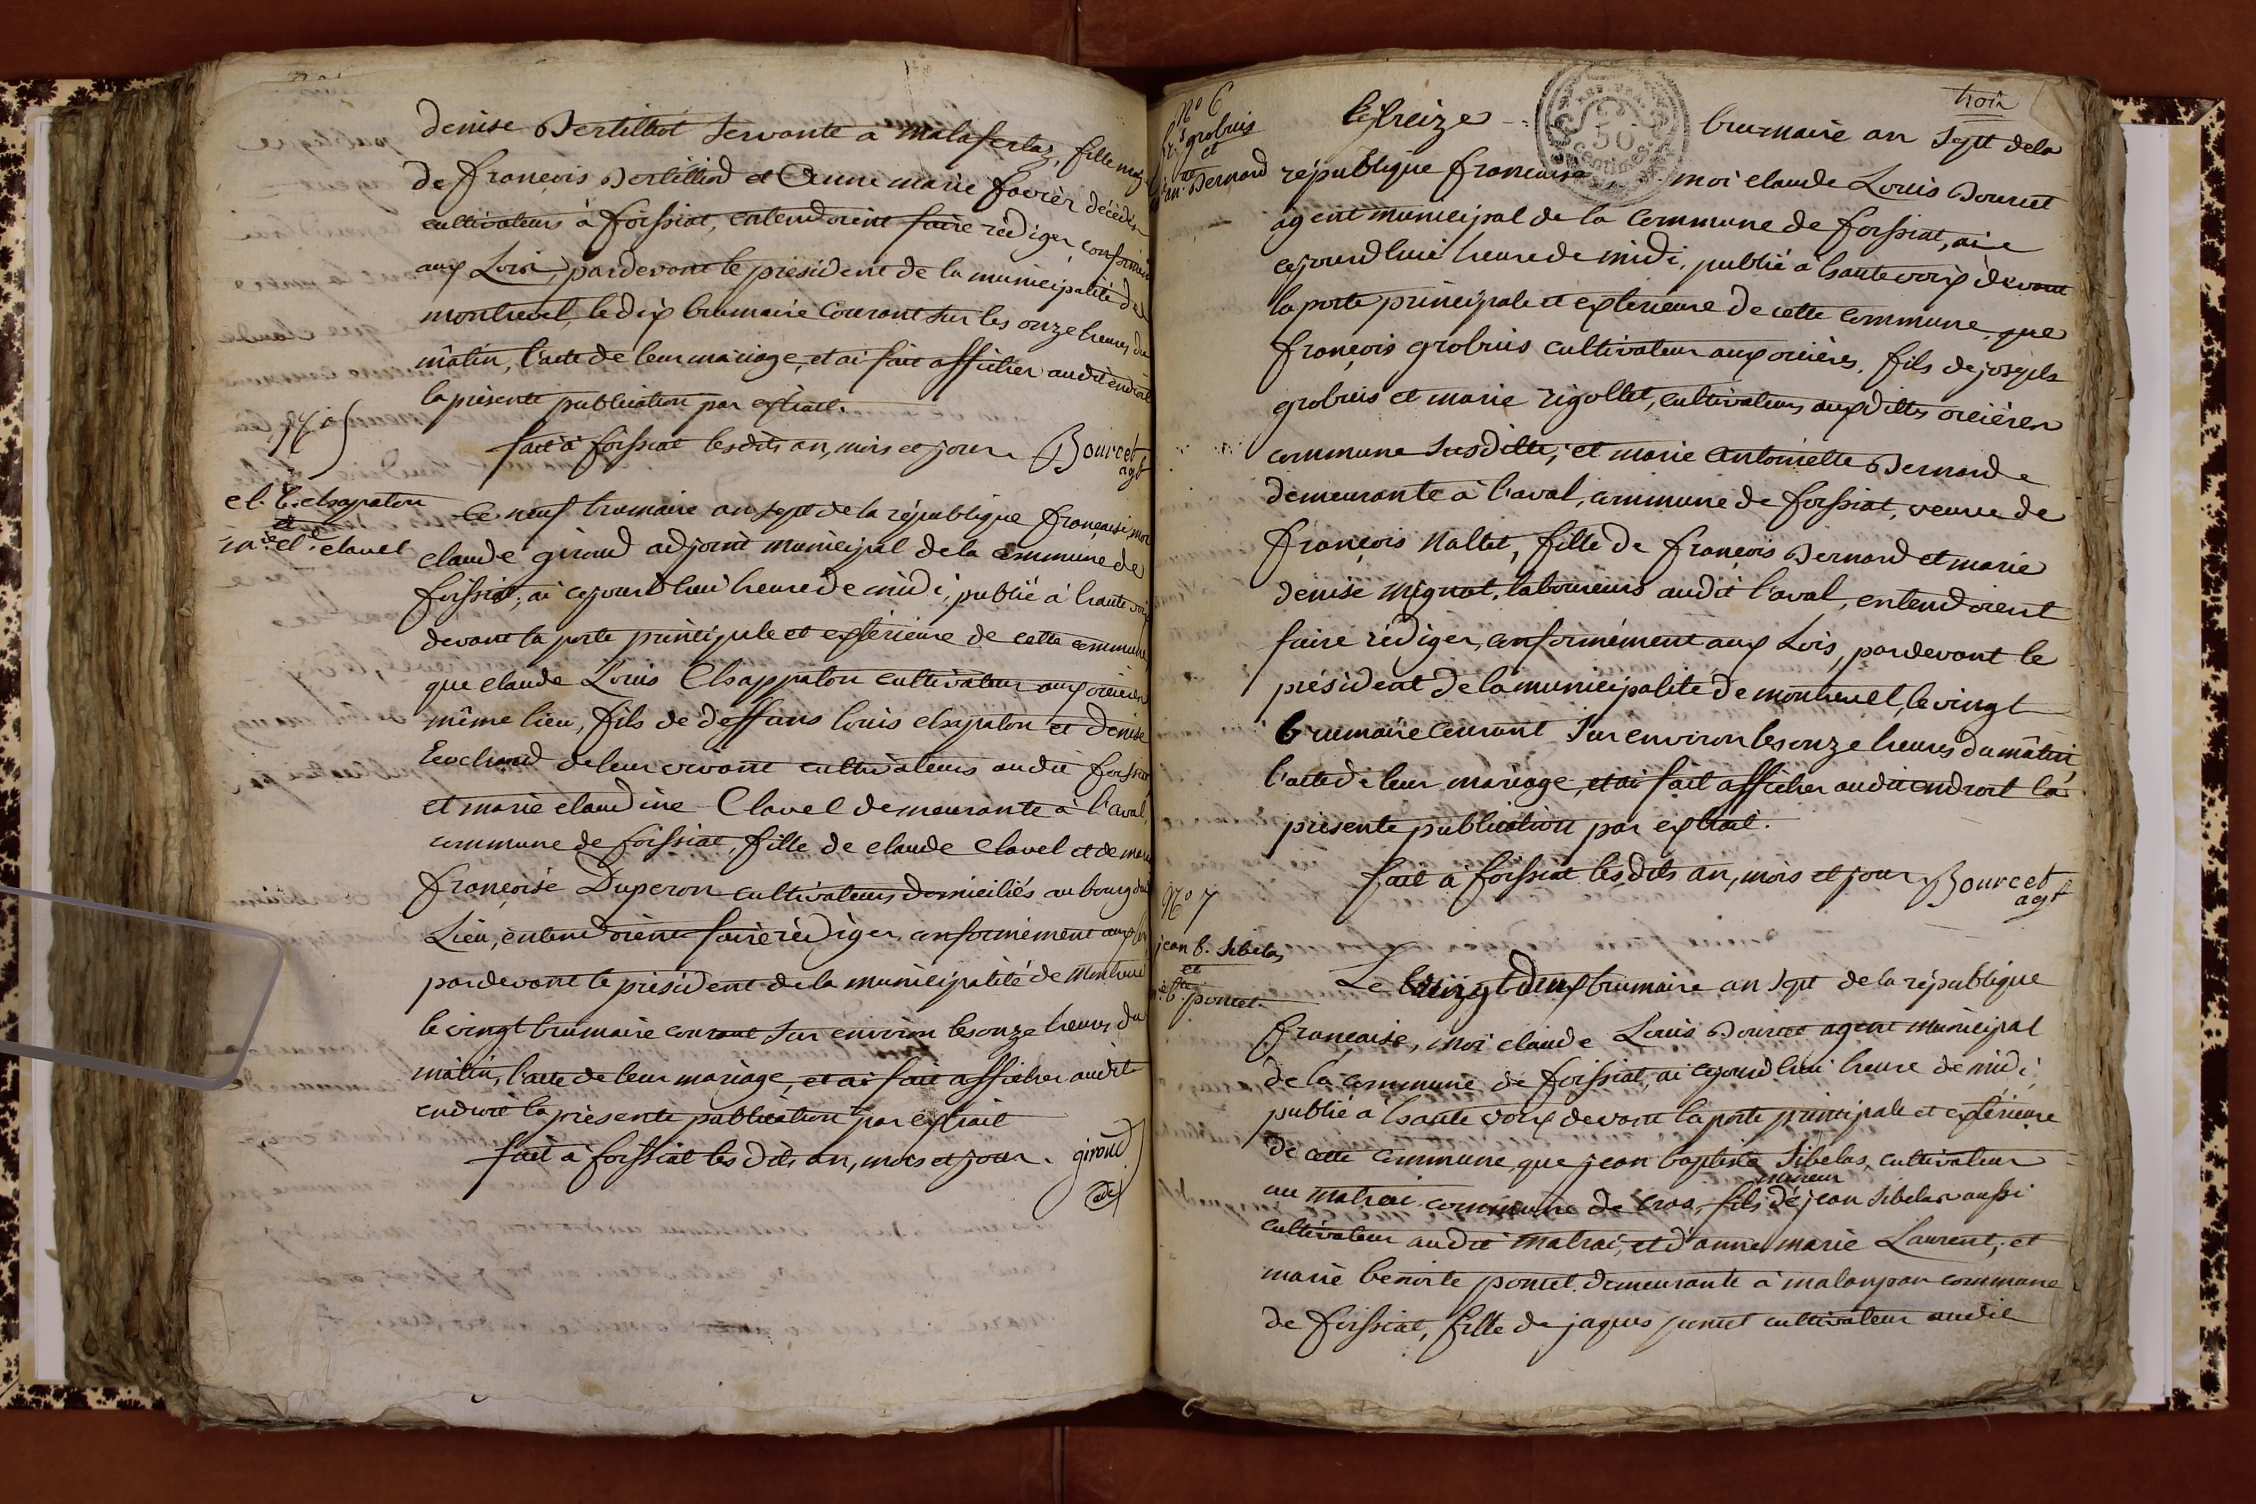 denise Bertillot servante à malafertaz, fille
de françois Bertilliod et Anne marie favier décédés
cultivateurs à foissiat, entendoient faire rédiger
aux Lois, pardevant le président de la municipalité de
montrevel, le dix brumaire courant sur les onze heures du
mâtin, l'acte de leur mariage, et ai fait afficher audit endroit
la présente publication par extrait.
fait à foissiat lesdits an, mois et jour. Bourcet
agt
Nº 5
cl. L. chapaton
et
clavel
Le neuf brumaire an sept de la république française, moi
claude giroud adjoint municipal de la commune de
foissiat, ai cejourd'hui heure de midi, publié à haute voix
devant la porte principale et extérieure de cette commune
que claude Louis Chappaton cultivateur aux orcières
même lieu, fils de deffunts louis chapaton et denise
de leur vivant cultivateurs audit foissiat
et marie claudine Clavel demeurante à l'aval,
commune de foissiat, fille de claude Clavel et de marie
françoise Duperon cultivateurs domiciliés au bourg dudit
Lieu, entendoient faire rédiger conformément aux lois
pardevant le président de la municipalité de Montrevel
le vingt brumaire courant sur environ les onze heures du
mâtin, l'acte de leur mariage, et ai fait afficher audit
endroit la présente publication par extrait
fait à foissiat les dits an, mois et jour. giroud
adj
trois
50
centimes
Nº 6
fr.s grobuis
et
ant. Bernard
Le treize brumaire an sept de la
république française moi claude Louis Bourcet
agent municipal de la commune de foissiat, ai
cejourd'hui heure de midi, publié à haute voix devant
la porte principale et extérieure de cette commune, que
françois grobuis cultivateur aux orcières, fils de joseph
grobuis et marie rigollet, cultivateurs auxdittes orcières
commune susditte; et marie antoinette Bernard
demeurante à l'aval, commune de foissiat, veuve de
françois Maltet, fille de françois Bernard et marie
denise mignot, laboureurs audit l'aval, entendoient
faire rédiger, conformément aux Lois, pardevant le
président de la municipalité de montrevel, le vingt
brumaire courant sur environ les onze heures du mâtin
l'acte de leur mariage, et ai fait afficher audit endroit la
présente publication par extrait.
fait à foissiat lesdits an, mois et jour Bourcet
agt
Nº 7
jean b. Sibelas
et
b.te poncet
Le vingt deux brumaire an sept de la république
française, moi claude Louis Bourcet agent municipal
de la commune de foissiat, ai cejourd'hui heure de midi,
publié à haute voix devant la porte principale et extérieure
de cette commune, que jean baptiste Sibelas, cultivateur
mineur
au matrai commune de cras, fils de jean sibelas aussi
cultivateur audit matrai, et d'anne marie Laurent; et
marie benoite poncet demeurante à malaypan commune
de foissiat, fille de jaques poncet cultivateur audit